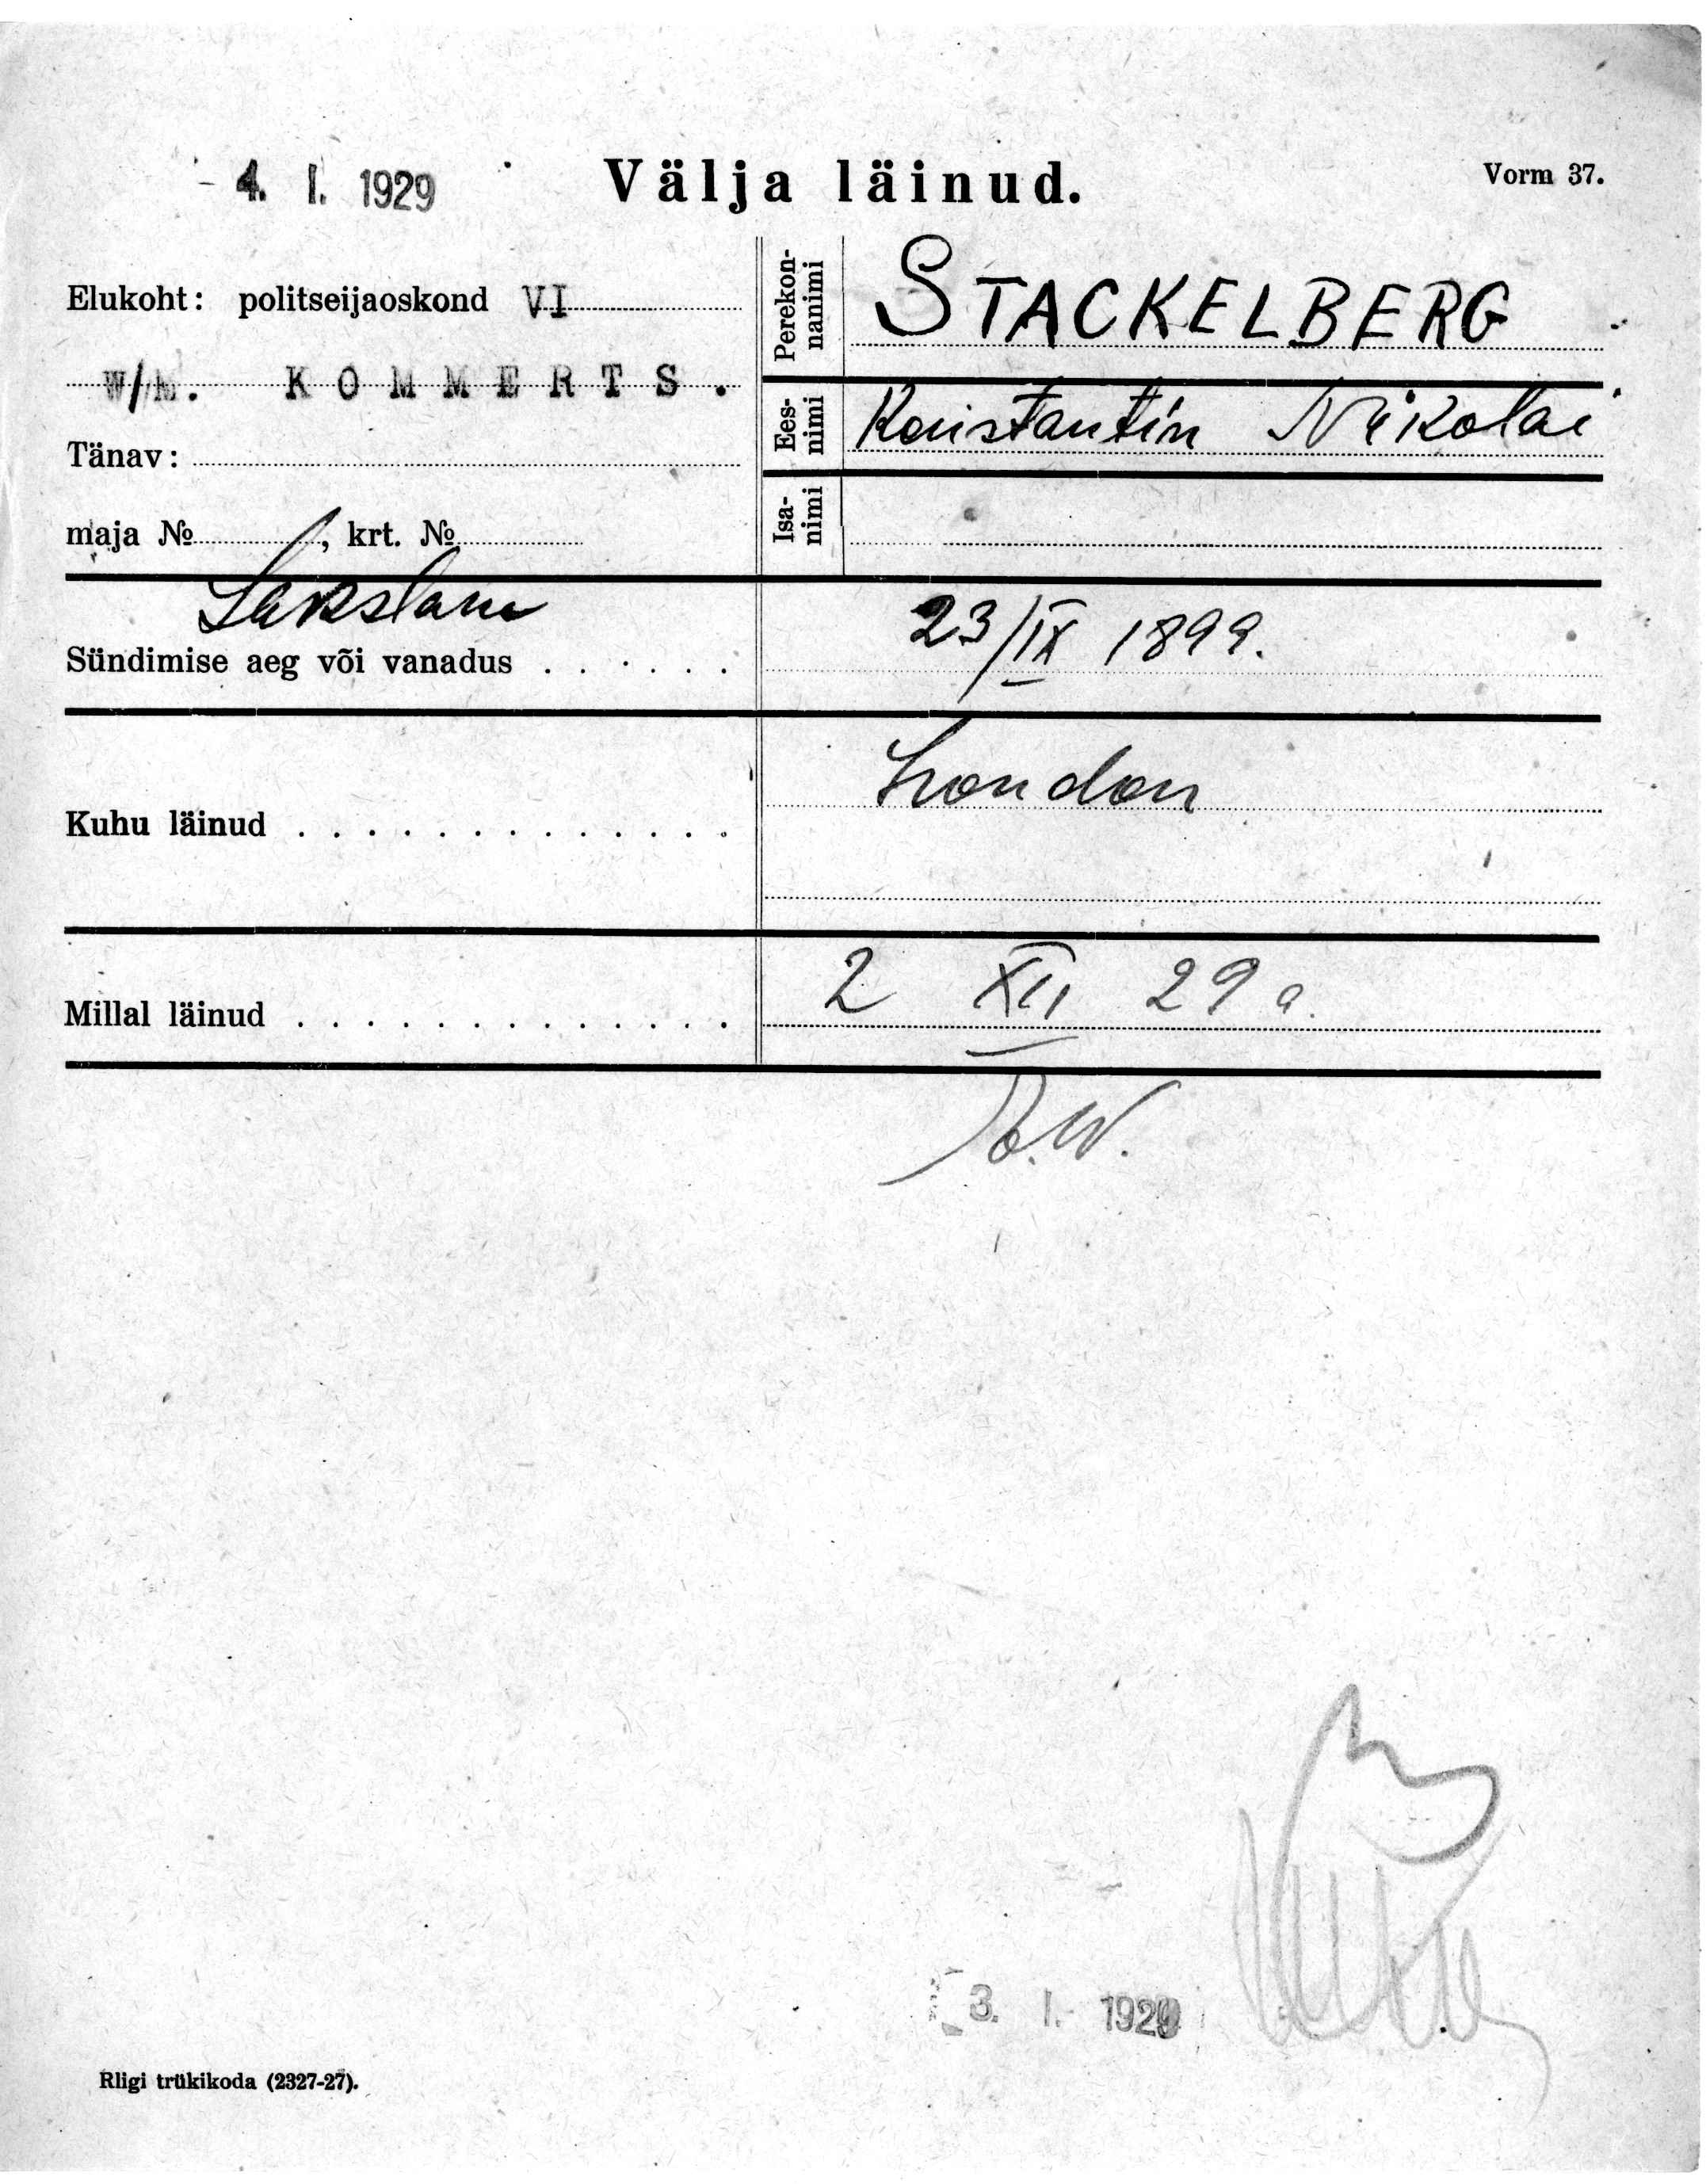 - 4. I. 1929
Välja läinud.
Vorm 37.
Elukoht: politseijaoskond VI
W/M. KOMMERTS.
Tänav:
maja № , krt. №
Perekon-
nanimi
STACKELBERG
Ees-
nimi
Konstantin Nikolai
Isa-
nimi
Sündimise aeg või vanadus . . . . . .
23/IX 1899.
Kuhu läinud . . . . . . . . . . . . .
London
Millal läinud . . . . . . . . . . . . .
2 XII 29 a.
3. I. 1929
Riigi trükikoda (2327-27).